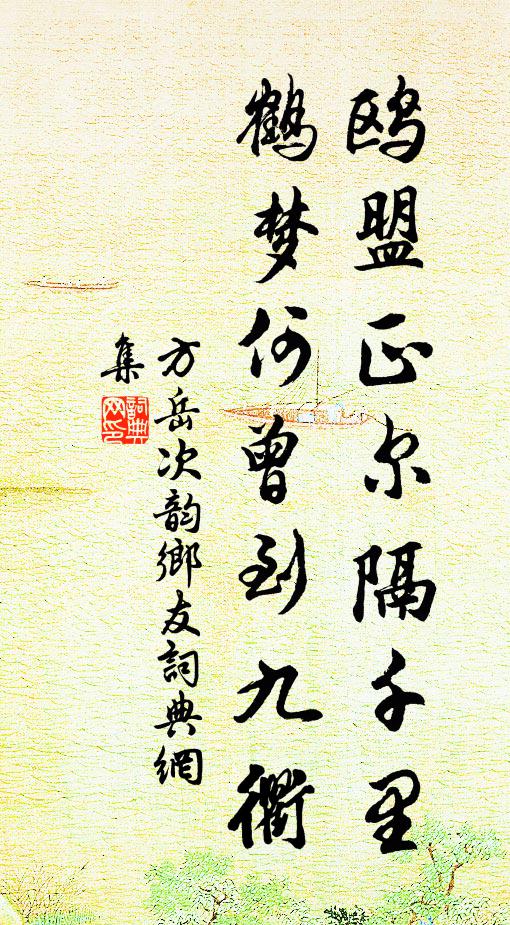 鸥盟正尔隔千里
鹤梦何曾到九衢
方岳次韵鄉友詞典網
集
詞典网印